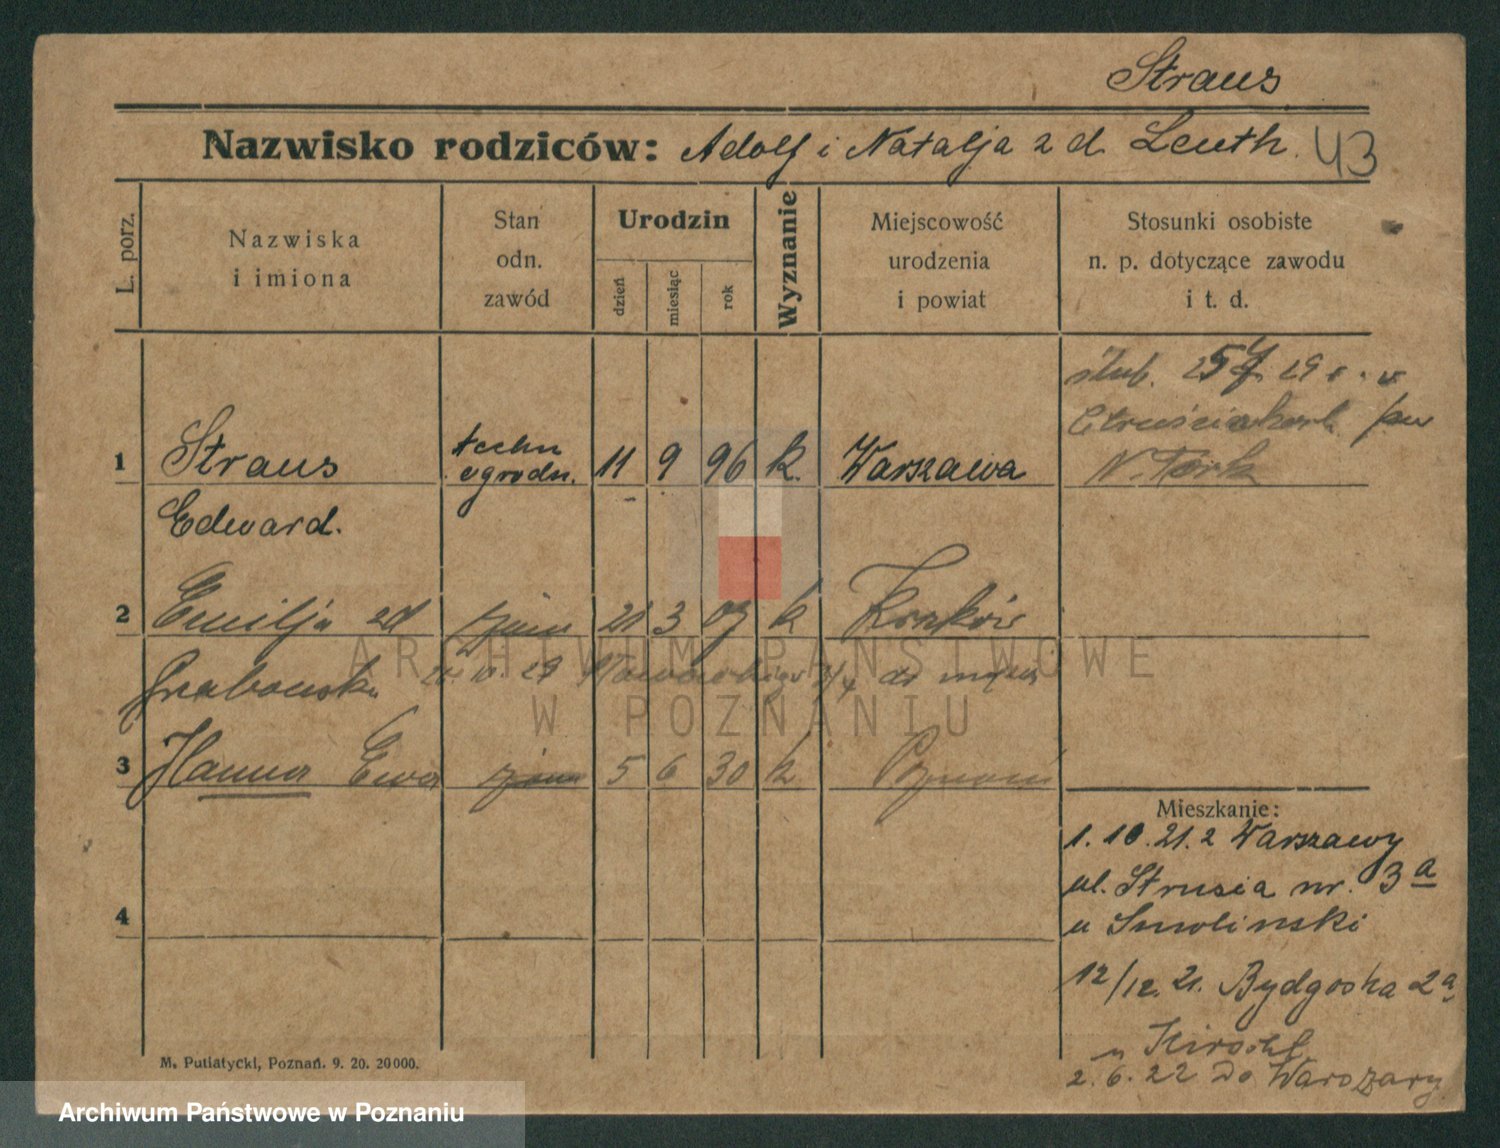 Straus
Nazwisko rodziców: Adolf i Natalja z d. Leuth. 43
L. porz.
Nazwiska
i imiona
Stan
odn.
zawód
Urodzin
dzień
miesiąc
rok
Wyznanie
Miejscowość
urodzenia
i powiat
Stosunki osobiste
n. p. dotyczące zawodu
i t. d.
ślub. 29
N. Targ
1 Straus techn 11 9 96 k. Warszawa
ogrodn.
Edward.
2 Emilja zd żona 21 3 k Kraków
Grabowska 29 do męża
3 Hanna Ewa 5 6 30 k Poznań
4
Mieszkanie:
1. 10. 21. z Warszawy
ul. Strusia nr. 3 a
u Smolinski
12/12. 21. Bydgoska 2a
u
2. 6. 22 do Warszawy
M. Putiatycki, Poznań. 9. 20. 20000.
ARCHIWUM PAŃSTWOWE
W POZNANIU
Archiwum Państwowe w Poznaniu